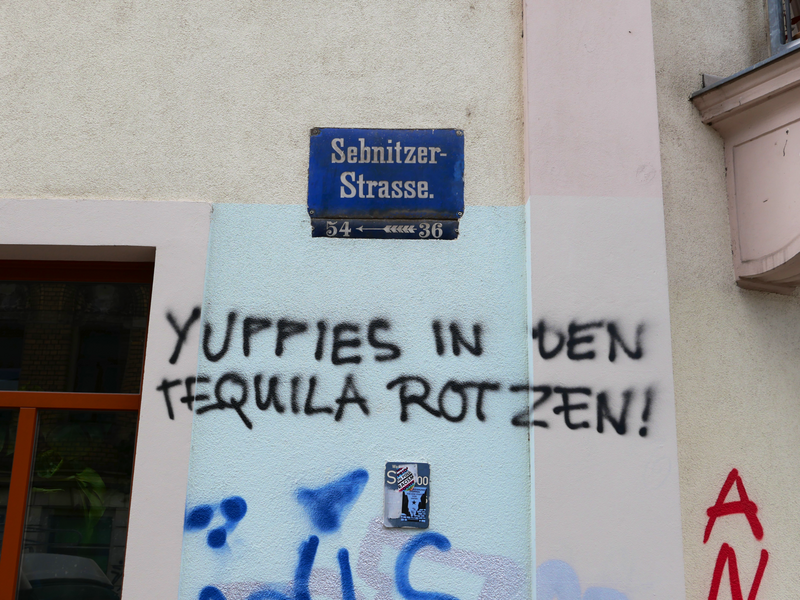 Sebnitzer-
Strasse.
54 36
YUPPIES IN DEN
TEQUILA ROTZEN!
S 00
A
N